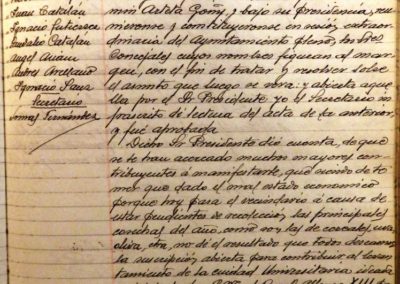 Juan Catalán
Ignacio Gutierrez
Catalán
Angel Ayam
Andres Arellano
Ignacio Sanz
Secretario
Fernández
bajo su presidencia, reu-
nieronse y constituyeronse en sesión extraor-
dinaria del Ayuntamiento pleno, los Sres
Concejales cuyos nombres figuran al mar-
gen, con el fin de tratar y resolver sobre
el asunto que luego se verá: y abierta aque-
lla por el Sr Presidente yo el Secretario in-
frascrito dí lectura del acta de la anterior,
y fué aprobada.
Dicho Sr Presidente dió cuenta, de que
se le han acercado muchos mayores con-
tribuyentes á manifestarle, que siendo de te-
mer que dado el mal estado económico
porque hoy pasa el vecindario á causa de
estar pendientes de recolección, las principales
cosechas del año, como son las de cereales, uva,
oliva, etra, no dé el resultado que todos deseamos
la suscripción abierta para contribuir al levan-
tamiento de la ciudad Universitaria ideada
XIII de